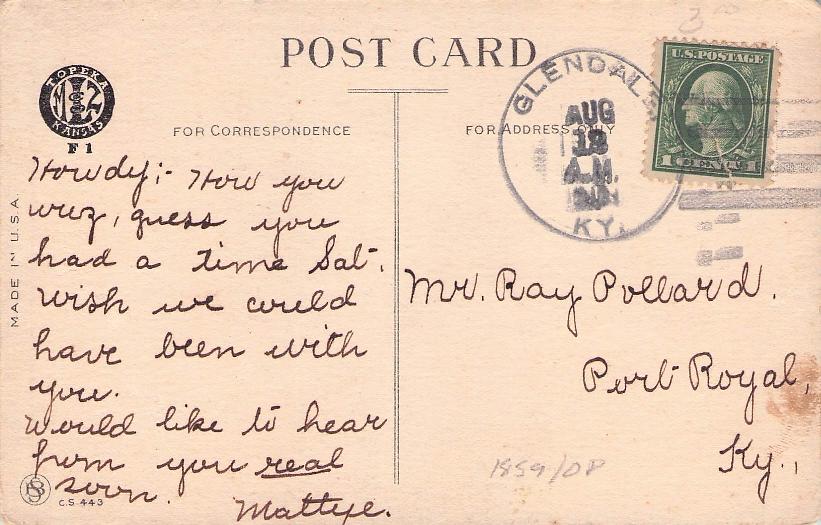 3⁰⁰
POST CARD
TOPEKA
KANSAS
F 1
FOR CORRESPONDENCE
FOR ADDRESS ONLY
GLENDALE
AUG
18
A.M.
KY.
U.S. POSTAGE
1 CENT 1
MADE IN U.S.A.
Howdy;- How you
wuz, guess you
had a time Sat.
Wish we could
have been with
you.
Would like to hear
from you real
soon.
Mattye.
C.S. 443
Mr. Ray Pollard.
Port Royal,
Ky.,
1859/DP